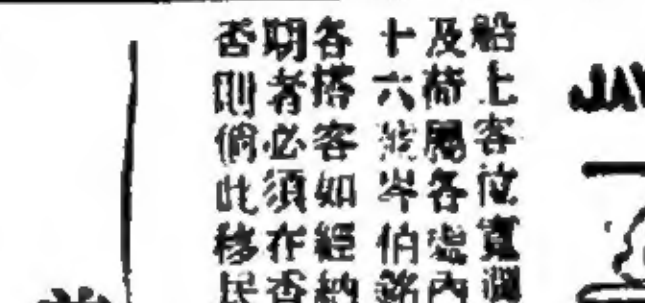 船上客位寬
及荷屬各處內
十六 岑伯銘
各搭客如經納
期者必須在香
否則倘此移民
JAV